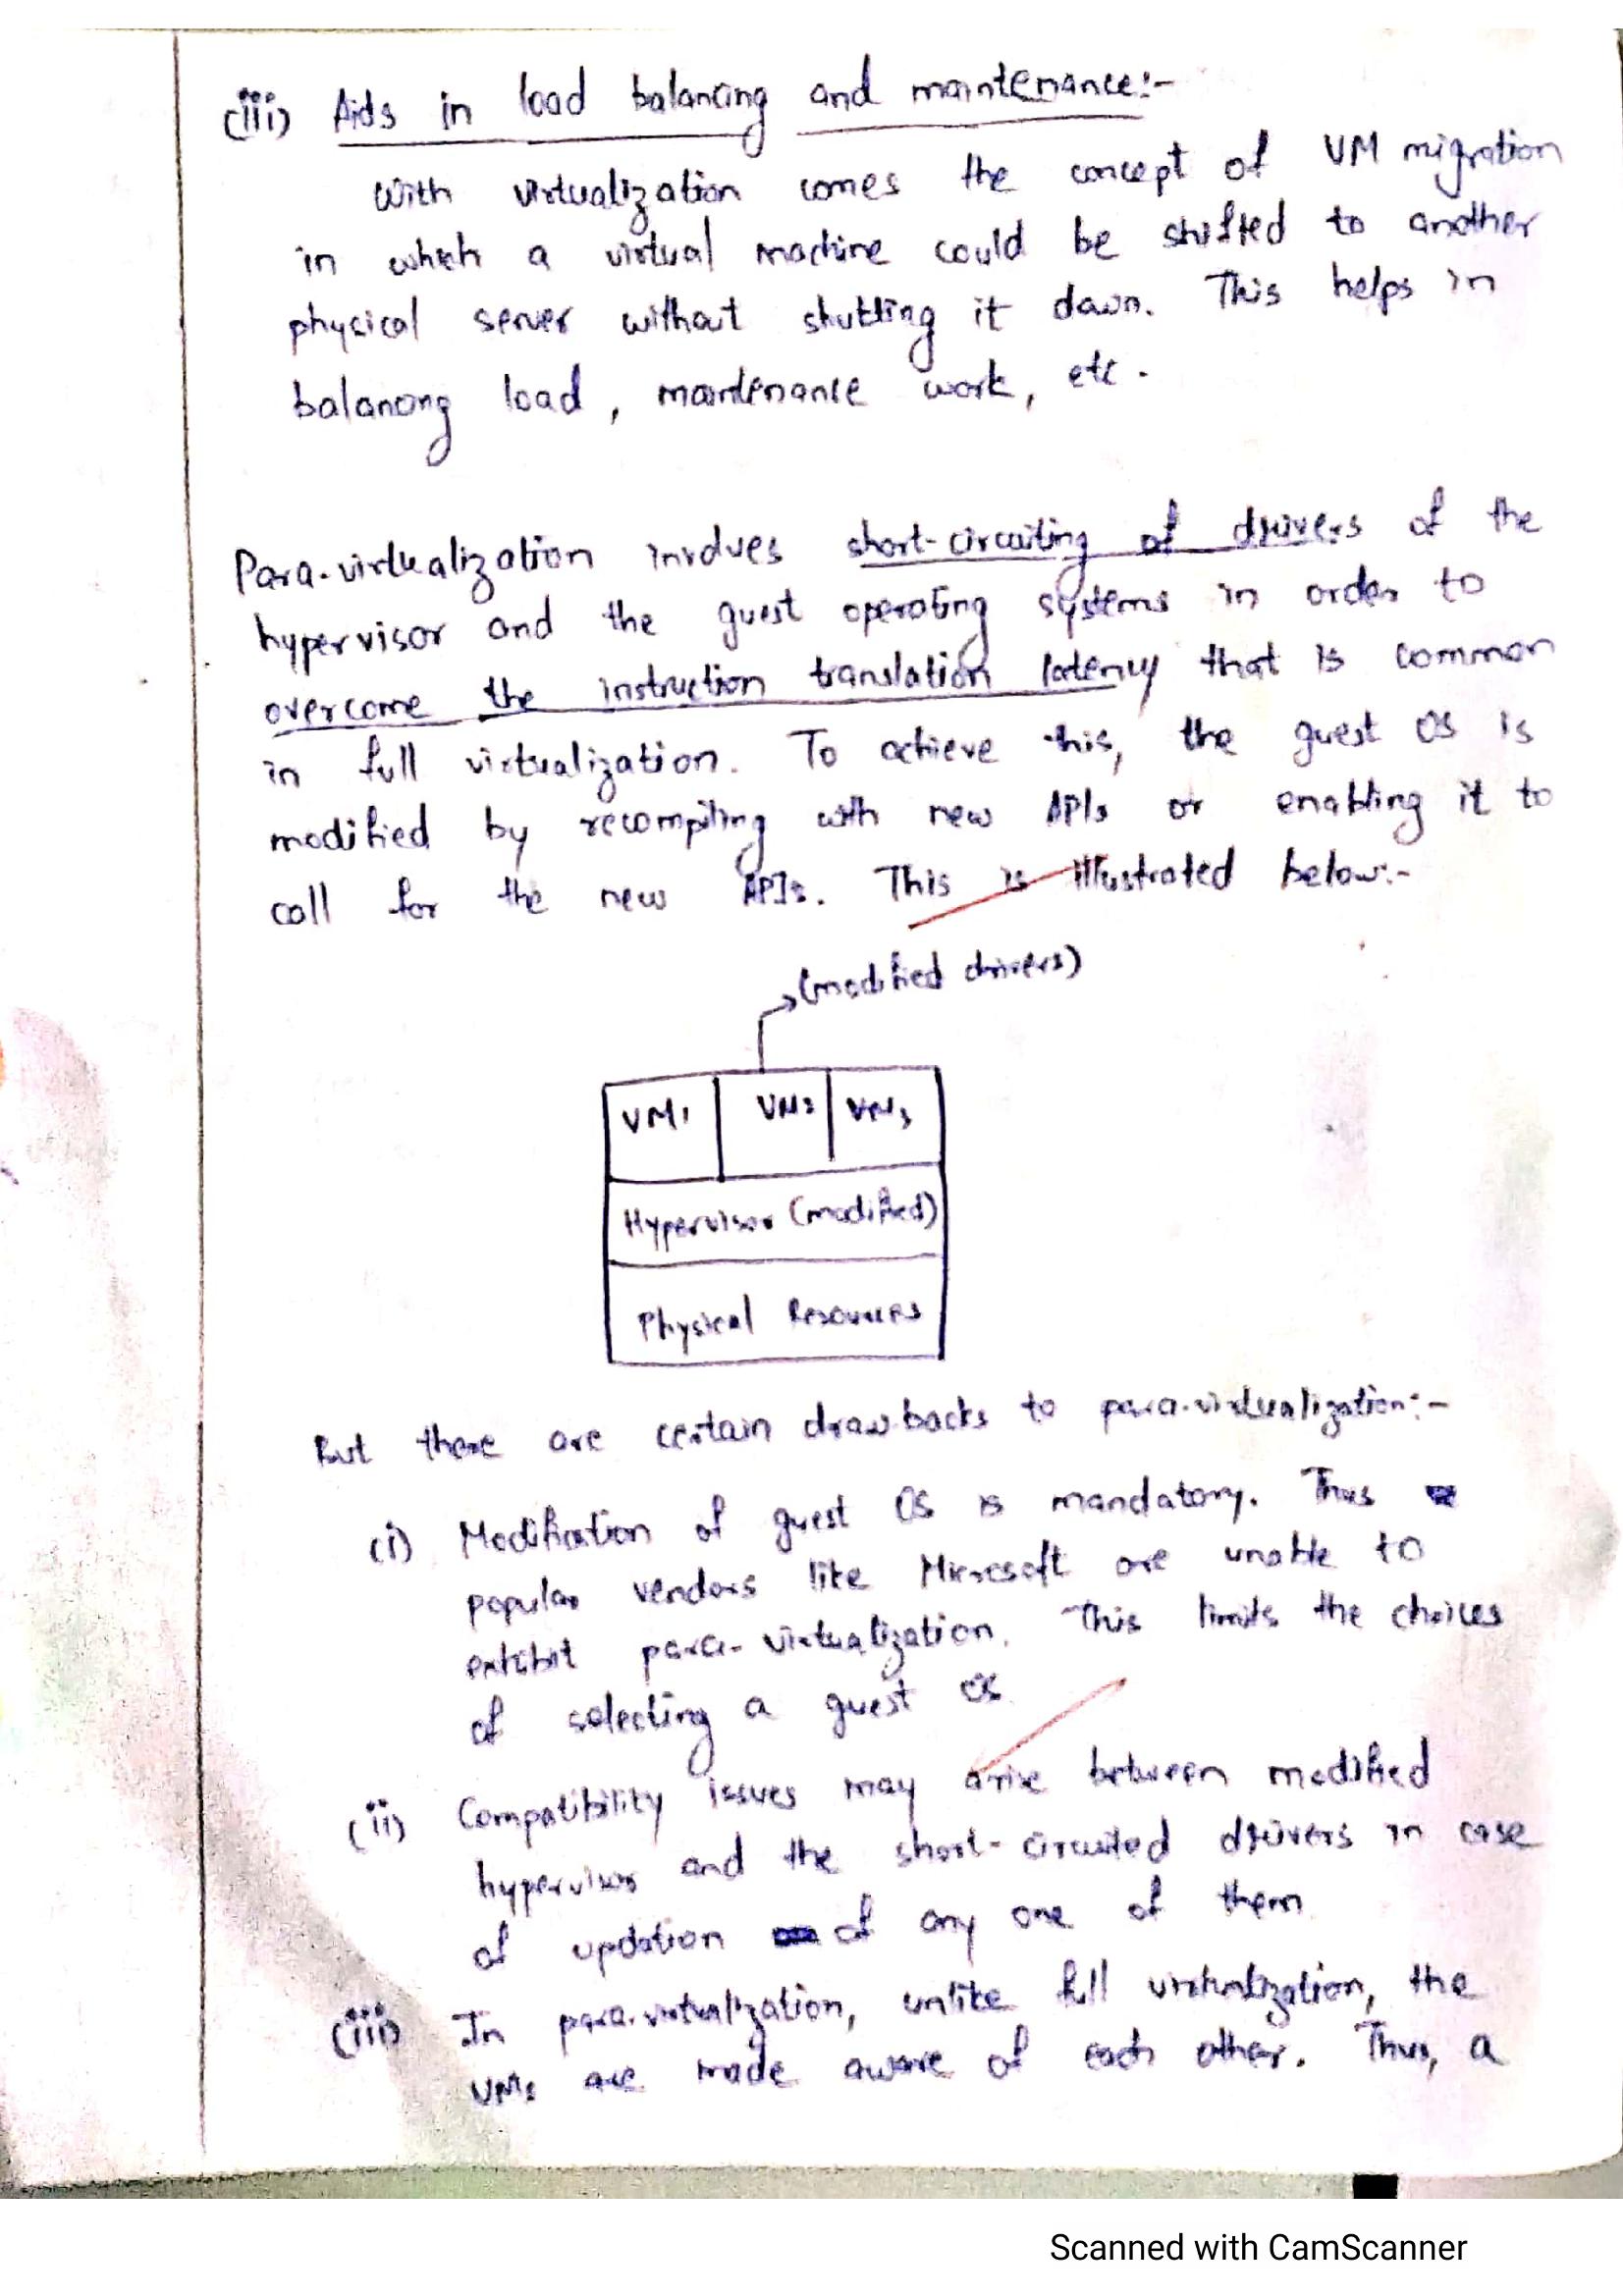 (iii) Aids in load balancing and maintenance:-
With virtualization comes the concept of VM migration
in which a virtual machine could be shifted to another
physical server without shutting it down. This helps in
balancing load, maintenance work, etc.
Para-virtualization involves short-circuiting of drivers of the
hypervisor and the guest operating systems in order to
overcome the instruction translation latency that is common
in full virtualization. To achieve this, the guest OS is
modified by recompiling with new APIs or enabling it to
call for the new APIs. This is illustrated below:-
(modified drivers)
VM1 VM2 VM3
Hypervisor (modified)
Physical Resources
But there are certain drawbacks to para-virtualization:-
(i) Modification of guest OS is mandatory. Thus
popular vendors like Microsoft are unable to
exhibit para-virtualization. This limits the choices
of selecting a guest OS
(ii) Compatibility issues may arise between modified
hypervisor and the short-circuited drivers in case
of updation of any one of them
(iii) In para-virtualization, unlike full virtualization, the
VMs are made aware of each other. Thus, a
Scanned with CamScanner